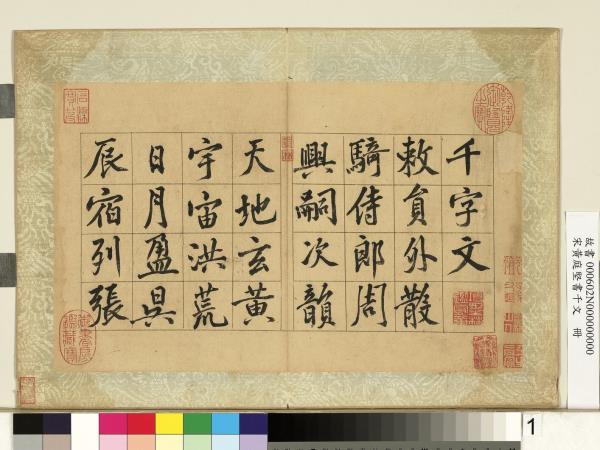 千字文
敕員外散
騎侍郎周
興嗣次韻
天地玄黃
宇宙洪荒
日月盈昃
辰宿列張
故書 000602N000000000
宋黃庭堅書千文 冊
1